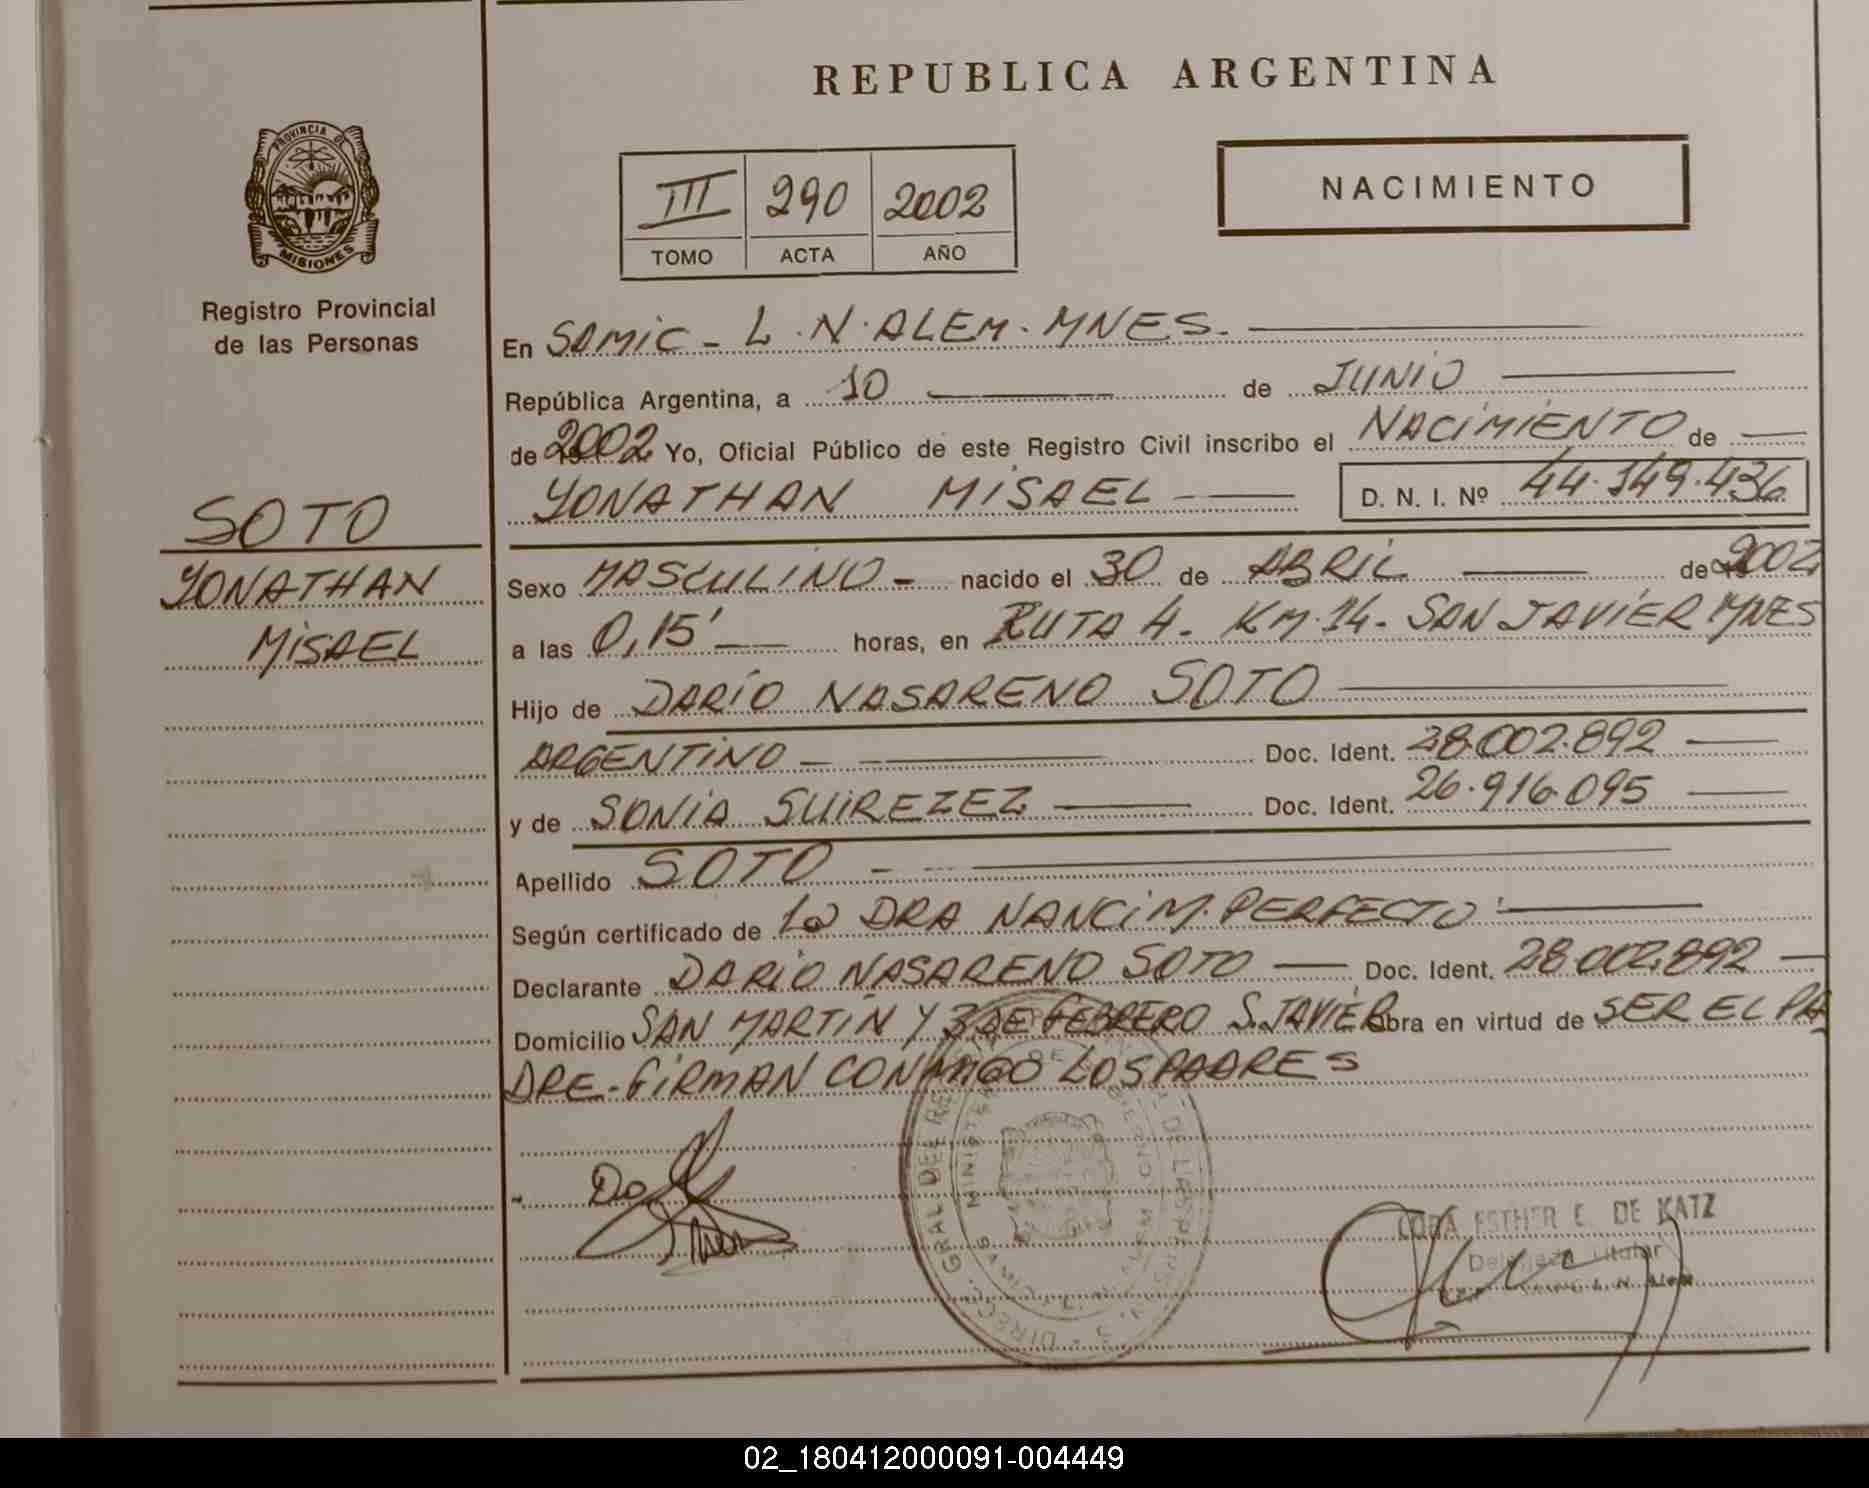 REPUBLICA ARGENTINA
PROVINCIA DE
MISIONES
Registro Provincial
de las Personas
III 290 2002
TOMO ACTA AÑO
NACIMIENTO
SOTO
YONATHAN
MISAEL
En SAMIC - L.N.ALEM. MNES.
República Argentina, a 10 de JUNIO
de 2002 Yo, Oficial Público de este Registro Civil inscribo el NACIMIENTO de
YONATHAN MISAEL - D. N. I. Nº 44.349.436
Sexo MASCULINO - nacido el 30 de ABRIL de 2002
a las 0,15' horas, en RUTA 4. KM.14. SAN JAVIER MNES
Hijo de DARÍO NASARENO SOTO
ARGENTINO - Doc. Ident. 28.002.892
y de SONIA SUIREZEZ Doc. Ident. 26.916.095
Apellido SOTO -
Según certificado de La DRA NANCI M. PERFECTO
Declarante DARIO NASARENO SOTO Doc. Ident. 28.002.892
Domicilio SAN MARTIN Y 3 DE FEBRERO S. JAVIER obra en virtud de SER EL PA
DRE - FIRMAN CONMIGO LOS PADRES
ESTHER E. DE KATZ
02_180412000091-004449